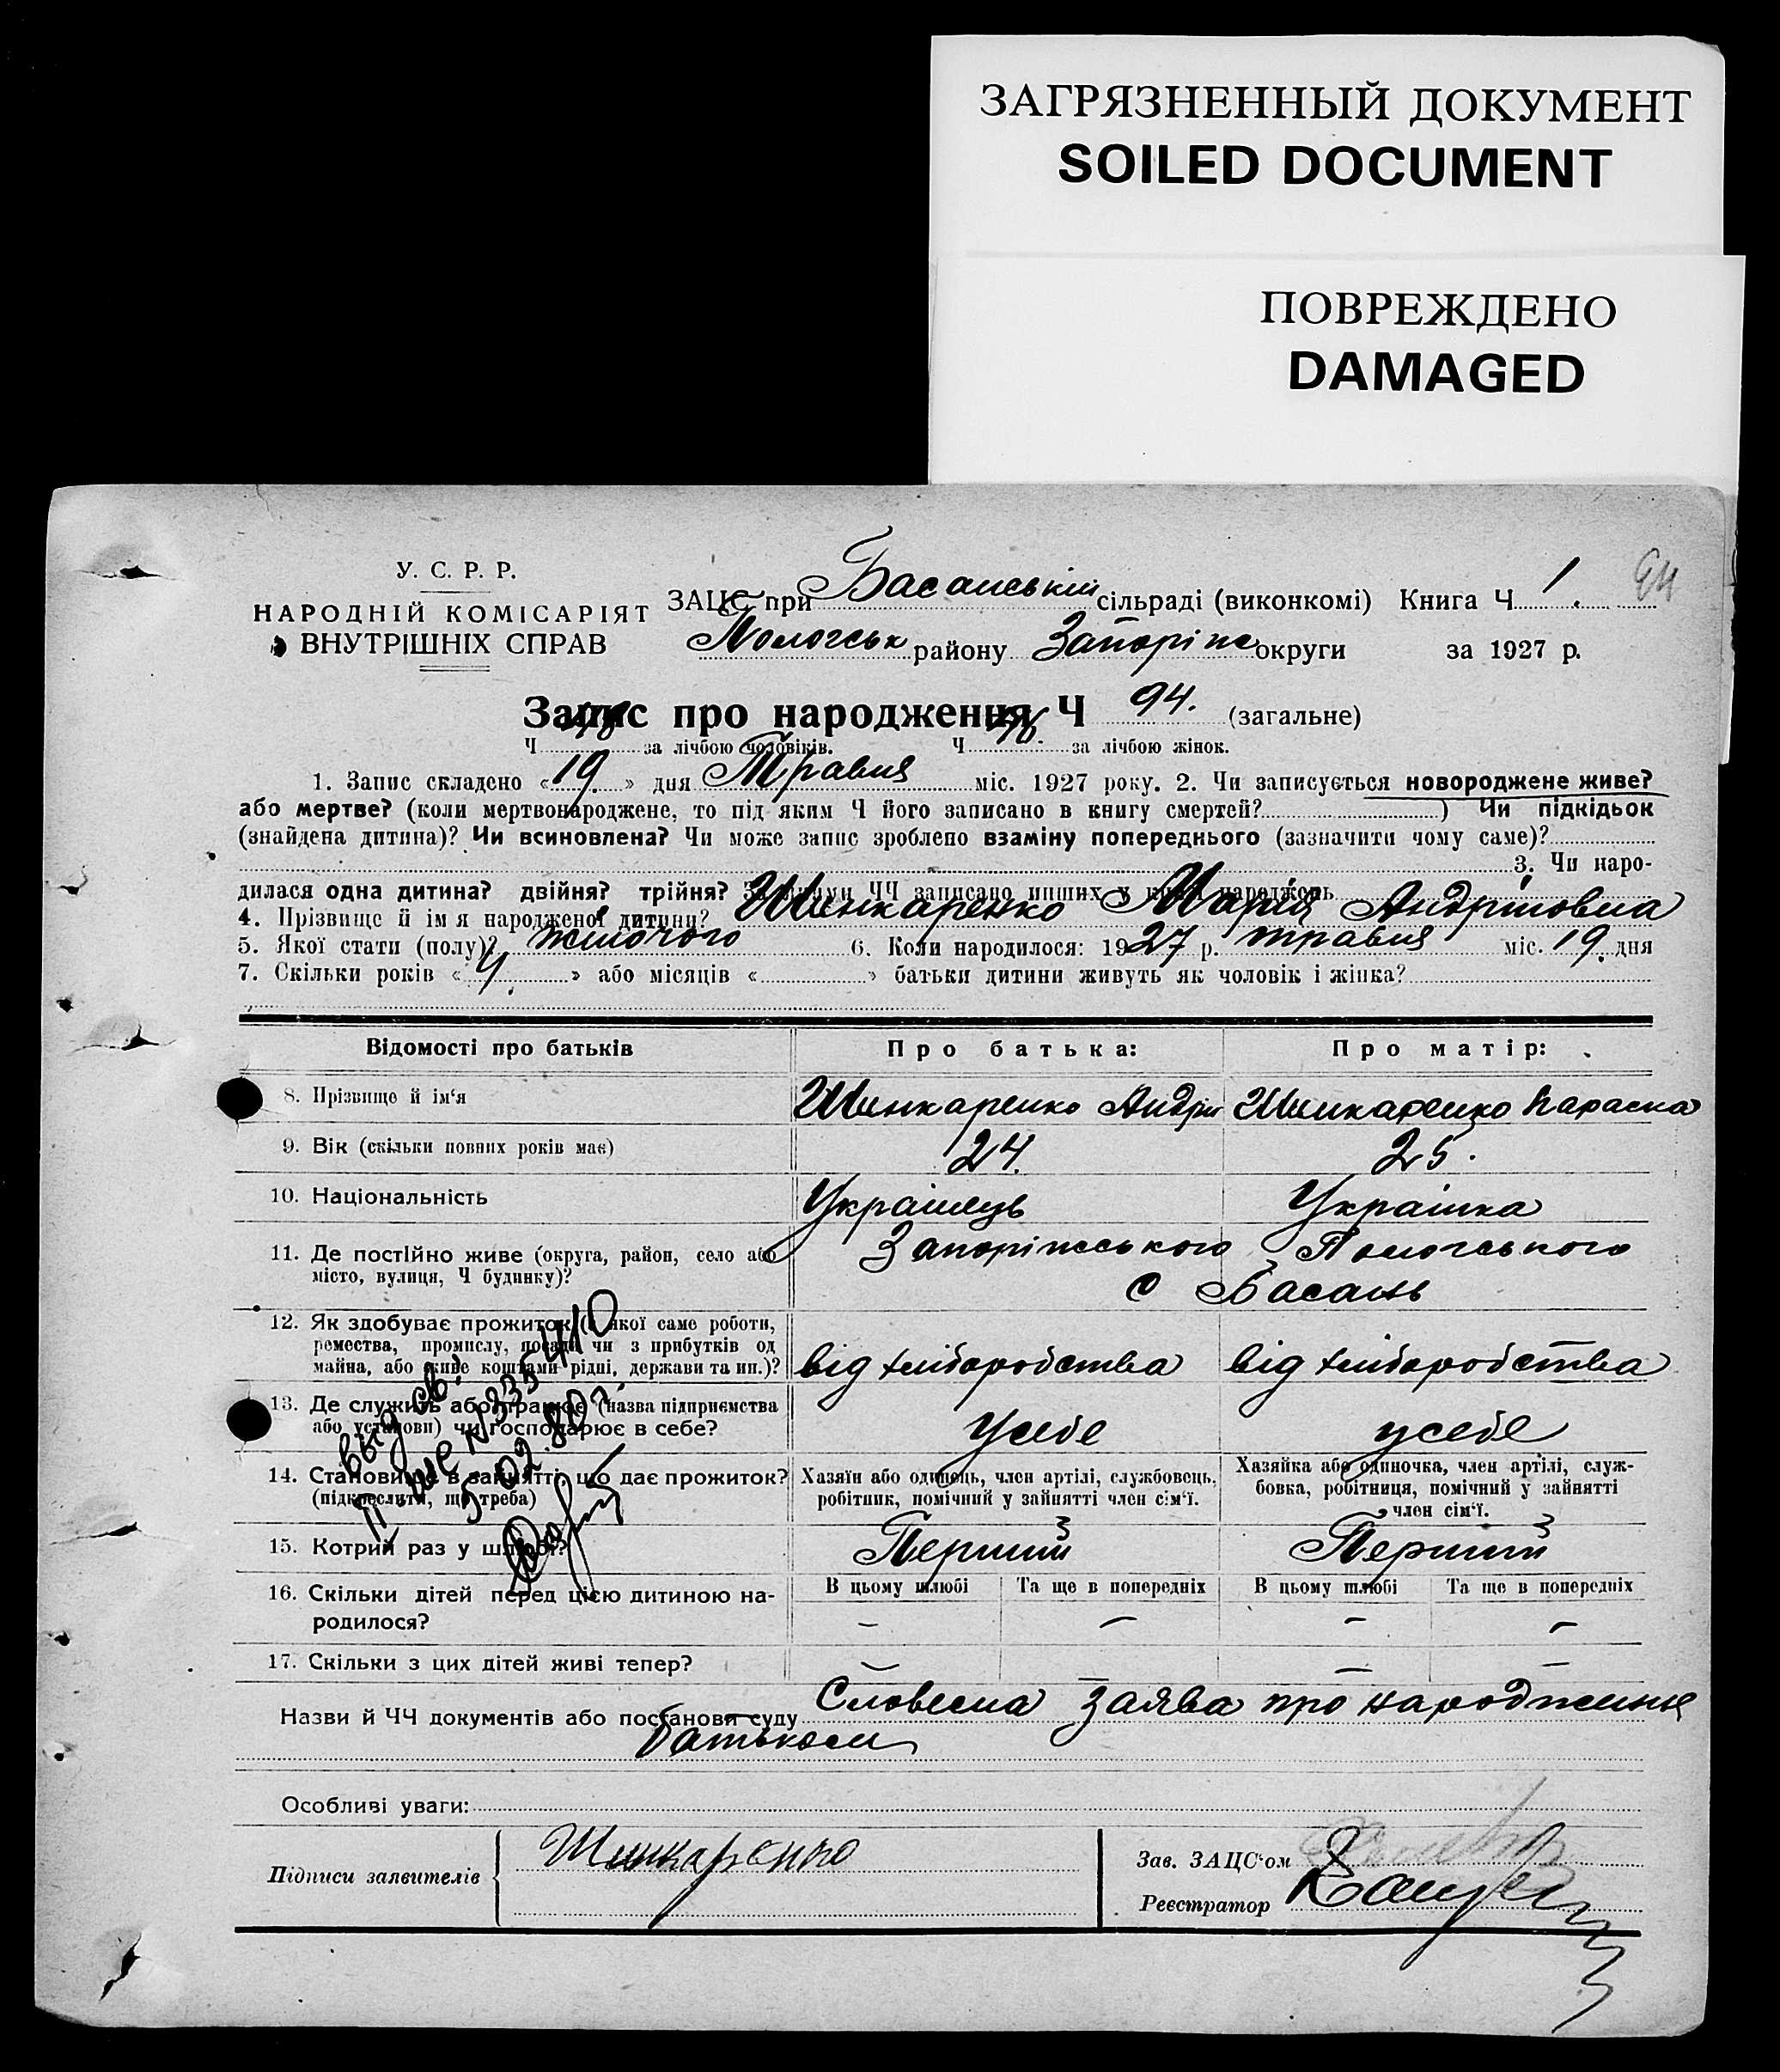 ЗАГРЯЗНЕННЫЙ ДОКУМЕНТ
SOILED DOCUMENT
ПОВРЕЖДЕНО
DAMAGED
У. С. Р. Р.
НАРОДНІЙ КОМІСАРІЯТ
ВНУТРІШНІХ СПРАВ
ЗАЦС при Басанській сільраді (виконкомі) Книга Ч 1.
Пологськ району Запоріж округи за 1927 р.
Запис про народження Ч 94. (загальне)
Ч за лічбою чоловіків. Ч за лічбою жінок.
1. Запис складено «19» дня Травня міс. 1927 року. 2. Чи записується новороджене живе?
або мертве? (коли мертвонароджене, то під яким Ч його записано в книгу смертей? ) Чи підкідьок
(знайдена дитина)? Чи всиновлена? Чи може запис зроблено взаміну попереднього (зазначити чому саме)?
3. Чи наро-
дилася одна дитина? двійня? трійня? За якими ЧЧ записано инших у книзі народжень
4. Прізвище й ім я народженої дитини? Шинкаренко Марія Андріівна
5. Якої стати (полу)? жіночого 6. Коли народилося: 1927 р. травня міс. 19. дня
7. Скільки років «4.» або місяців « » батьки дитини живуть як чоловік і жінка?
Відомості про батьків Про батька: Про матір:
8. Прізвище й ім'я Шинкаренко Андрій Шинкаренко Параска
9. Вік (скільки повних років має) 24. 25.
10. Національність Українець Українка
11. Де постійно живе (округа, район, село або Запоріжського Пологського
місто, вулиця, Ч будинку)? с Басань
12. Як здобуває прожиток (з якої саме роботи,
ремества, промислу, посади чи з прибутків од
майна, або живе коштами рідні, держави та ин.)? від хліборобства від хліборобства
13. Де служить або працює (назва підприємства
або установи) чи господарює в себе? у себе у себе
14. Становище в занятті, що дає прожиток?
(підкреслити, що треба)
Хазяїн або одинець, член артілі, службовець,
робітник, помічний у зайнятті член сім'ї.
Хазяйка або одиночка, член артілі, служ-
бовка, робітниця, помічний у зайнятті
член сім'ї.
15. Котрий раз у шлюбі? Перший Перший
16. Скільки дітей перед цією дитиною на-
родилося?
В цьому шлюбі Та ще в попередніх В цьому шлюбі Та ще в попередніх
– – – –
17. Скільки з цих дітей живі тепер? – – – –
Назви й ЧЧ документів або постанови суду Словесна заява про народження
батьком
Особливі уваги:
Підписи заявителів Шинкаренко
Зав. ЗАЦС'ом
Реєстратор
Выд св.
N 335410
5.02.80г.